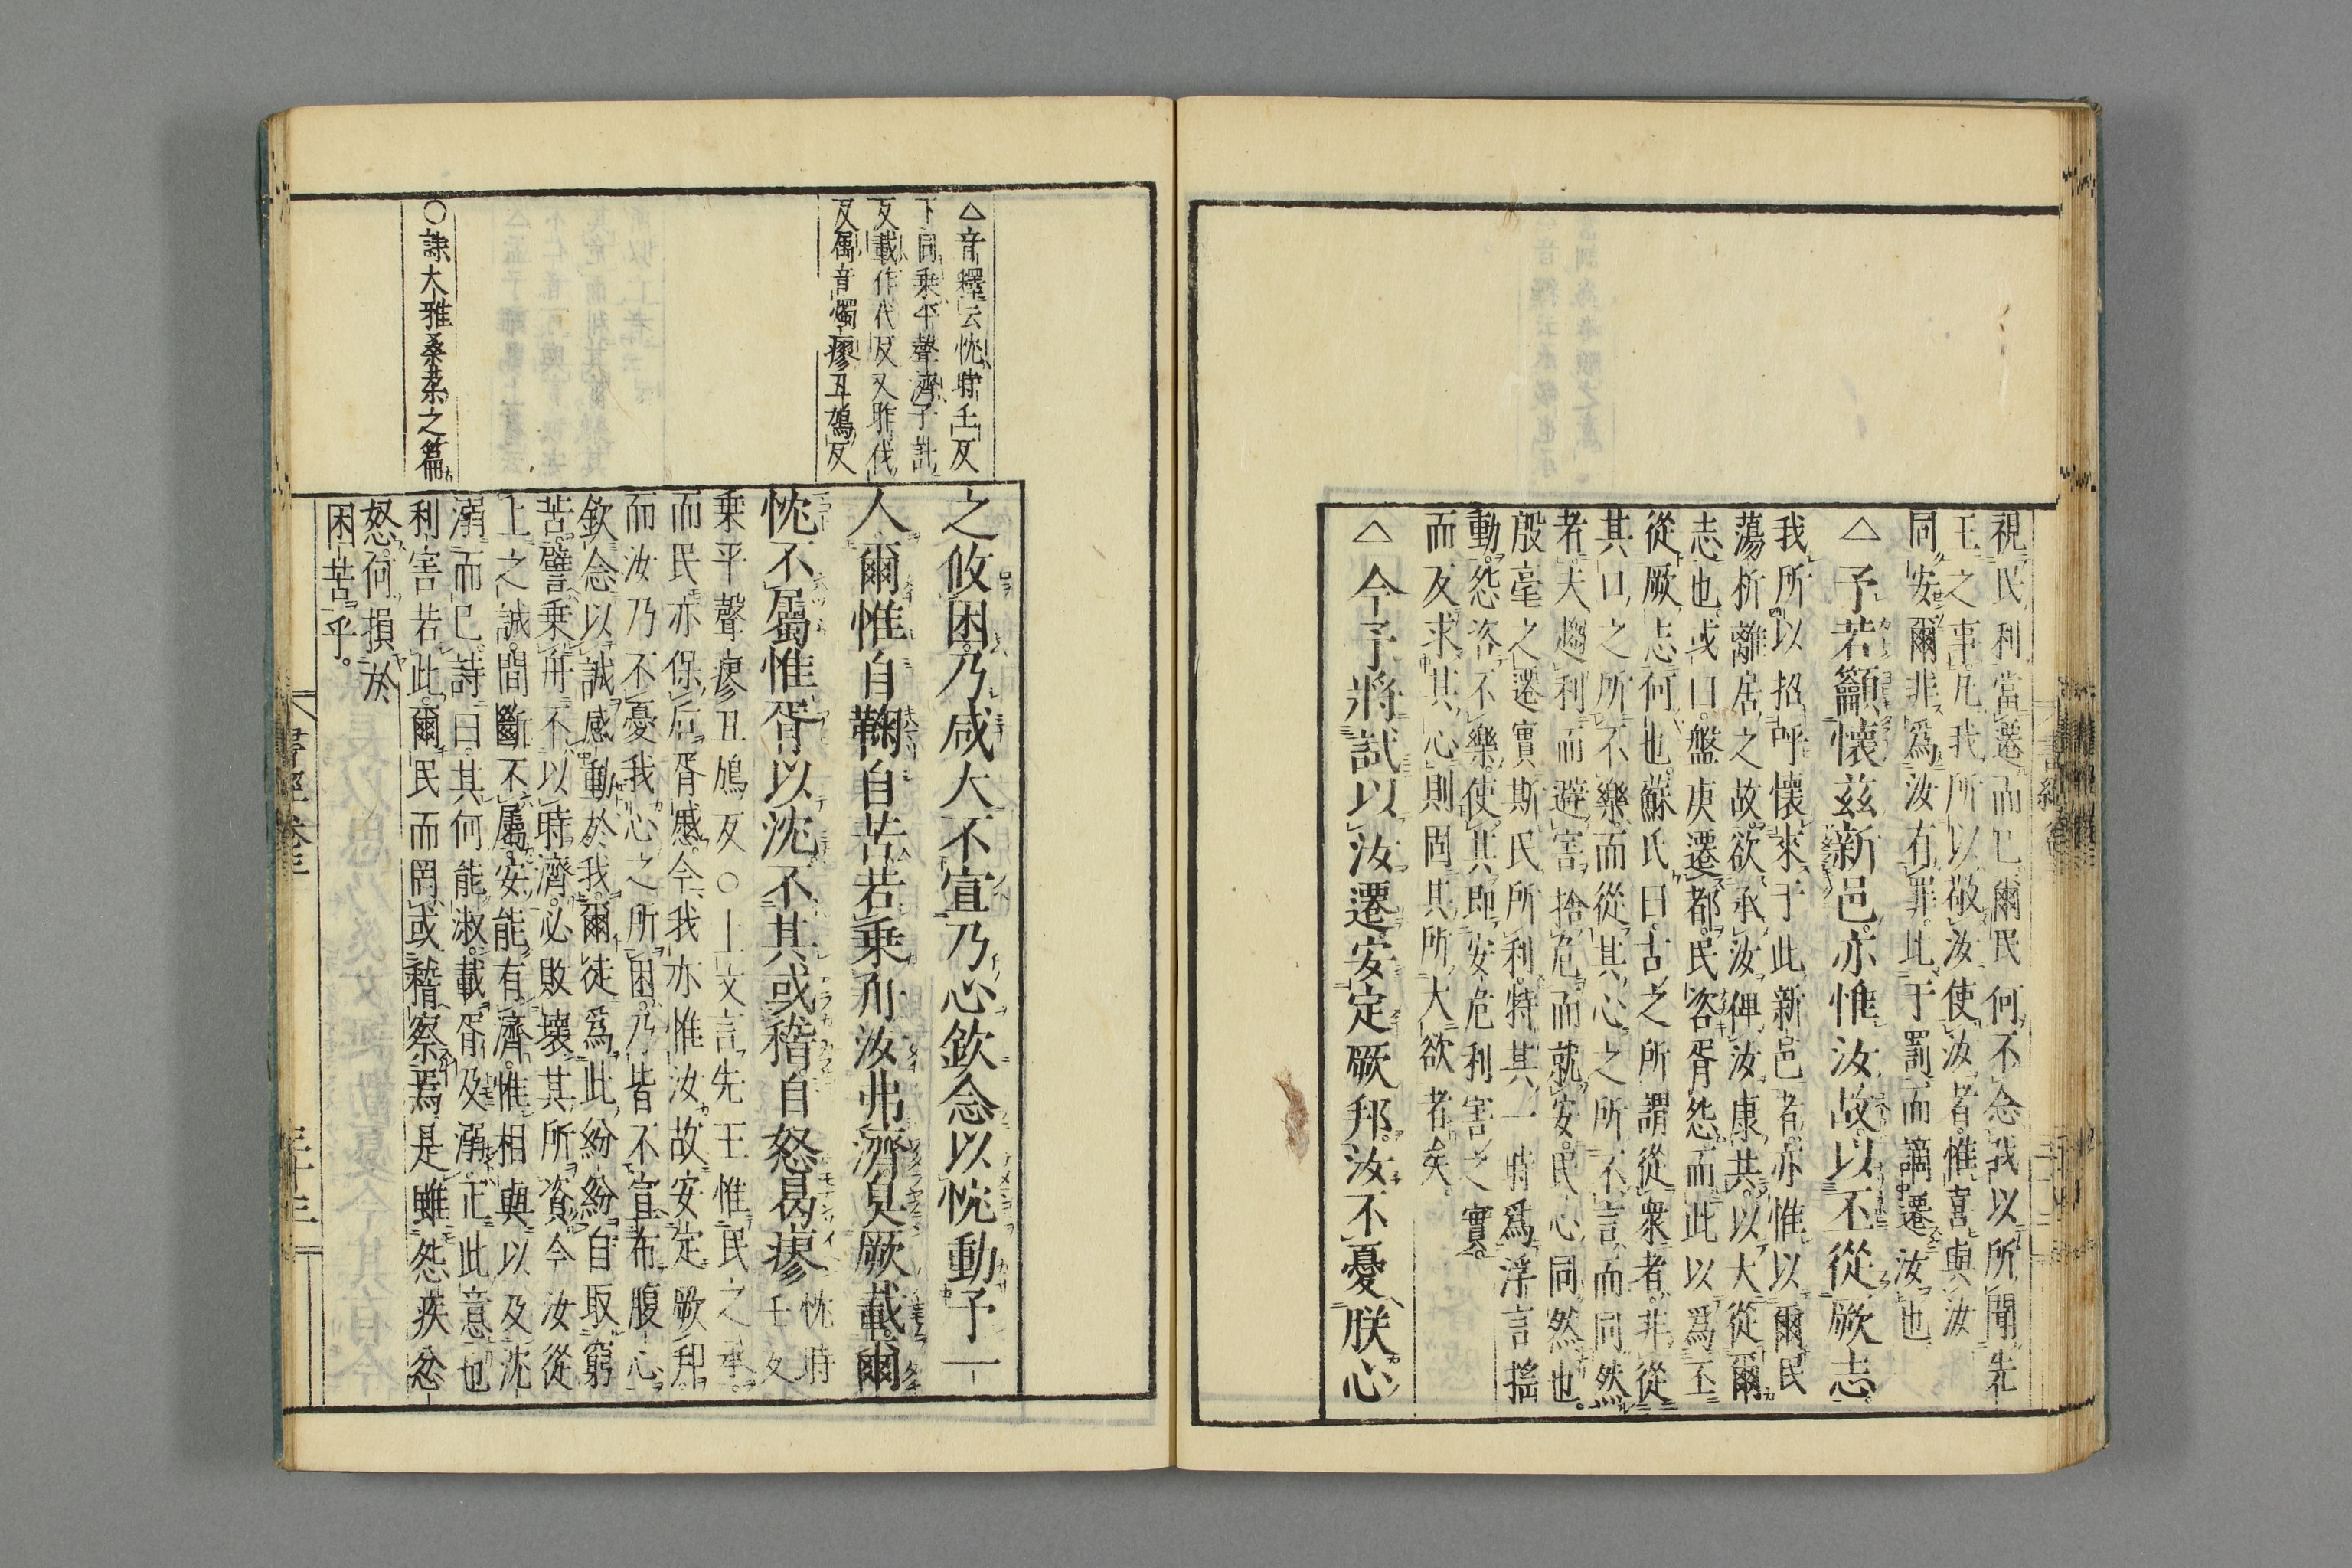 視民利當遷而已爾民何不念我以所聞先
王之事凡我所以敬汝使汝者惟喜與汝
同安爾非爲汝有罪此于罰而謫遷汝也
△予若籲懷茲新邑亦惟汝故以丕從厥志
我所以招呼懷來于此新邑者亦惟以爾民
蕩析離居之故欲承汝俾汝康共以大從爾
志也或曰盤庚遷都民咨胥怨而此以爲丕
從厥志何也蘇氏曰古之所謂從衆者非從
其口之所不樂而從其心之所不言而同然
者夫趨利而避害捨危而就安民心同然也
殷亳之遷實斯民所利特其一時爲浮言搖
動怨咨不樂使其即安危利害之實
而反求其心則固其所大欲者矣
△今予將試以汝遷安定厥邦汝不憂朕心
△音釋云忱時壬反
下同乗平聲濟子計
反載作代反又昨代
反屬音燭瘳丑鳩反
之攸困乃咸大不宣乃心欽念以忱動予一
人爾惟自鞠自苦若乗舟汝弗濟臭厥載爾
忱不屬惟胥以沈不其或稽自怒曷瘳忱時壬反
乗平聲瘳丑鳩反○上文言先王惟民之承
而民亦保后胥慼今我亦惟汝故安定厥邦
而汝乃不憂我心之所困乃皆不宣布腹心
欽念以誠感動於我爾徒爲此紛紛自取窮
苦譬乗舟不以時濟必敗壞其所資今汝從
上之誠間斷不屬安能有濟惟相與以及沈
溺而已詩曰其何能淑載胥及溺正此意也
○詩大雅桑柔之篇
利害若此爾民而罔或稽察焉是雖怨疾忿
怒何損於
困苦乎
書經卷三
三十三